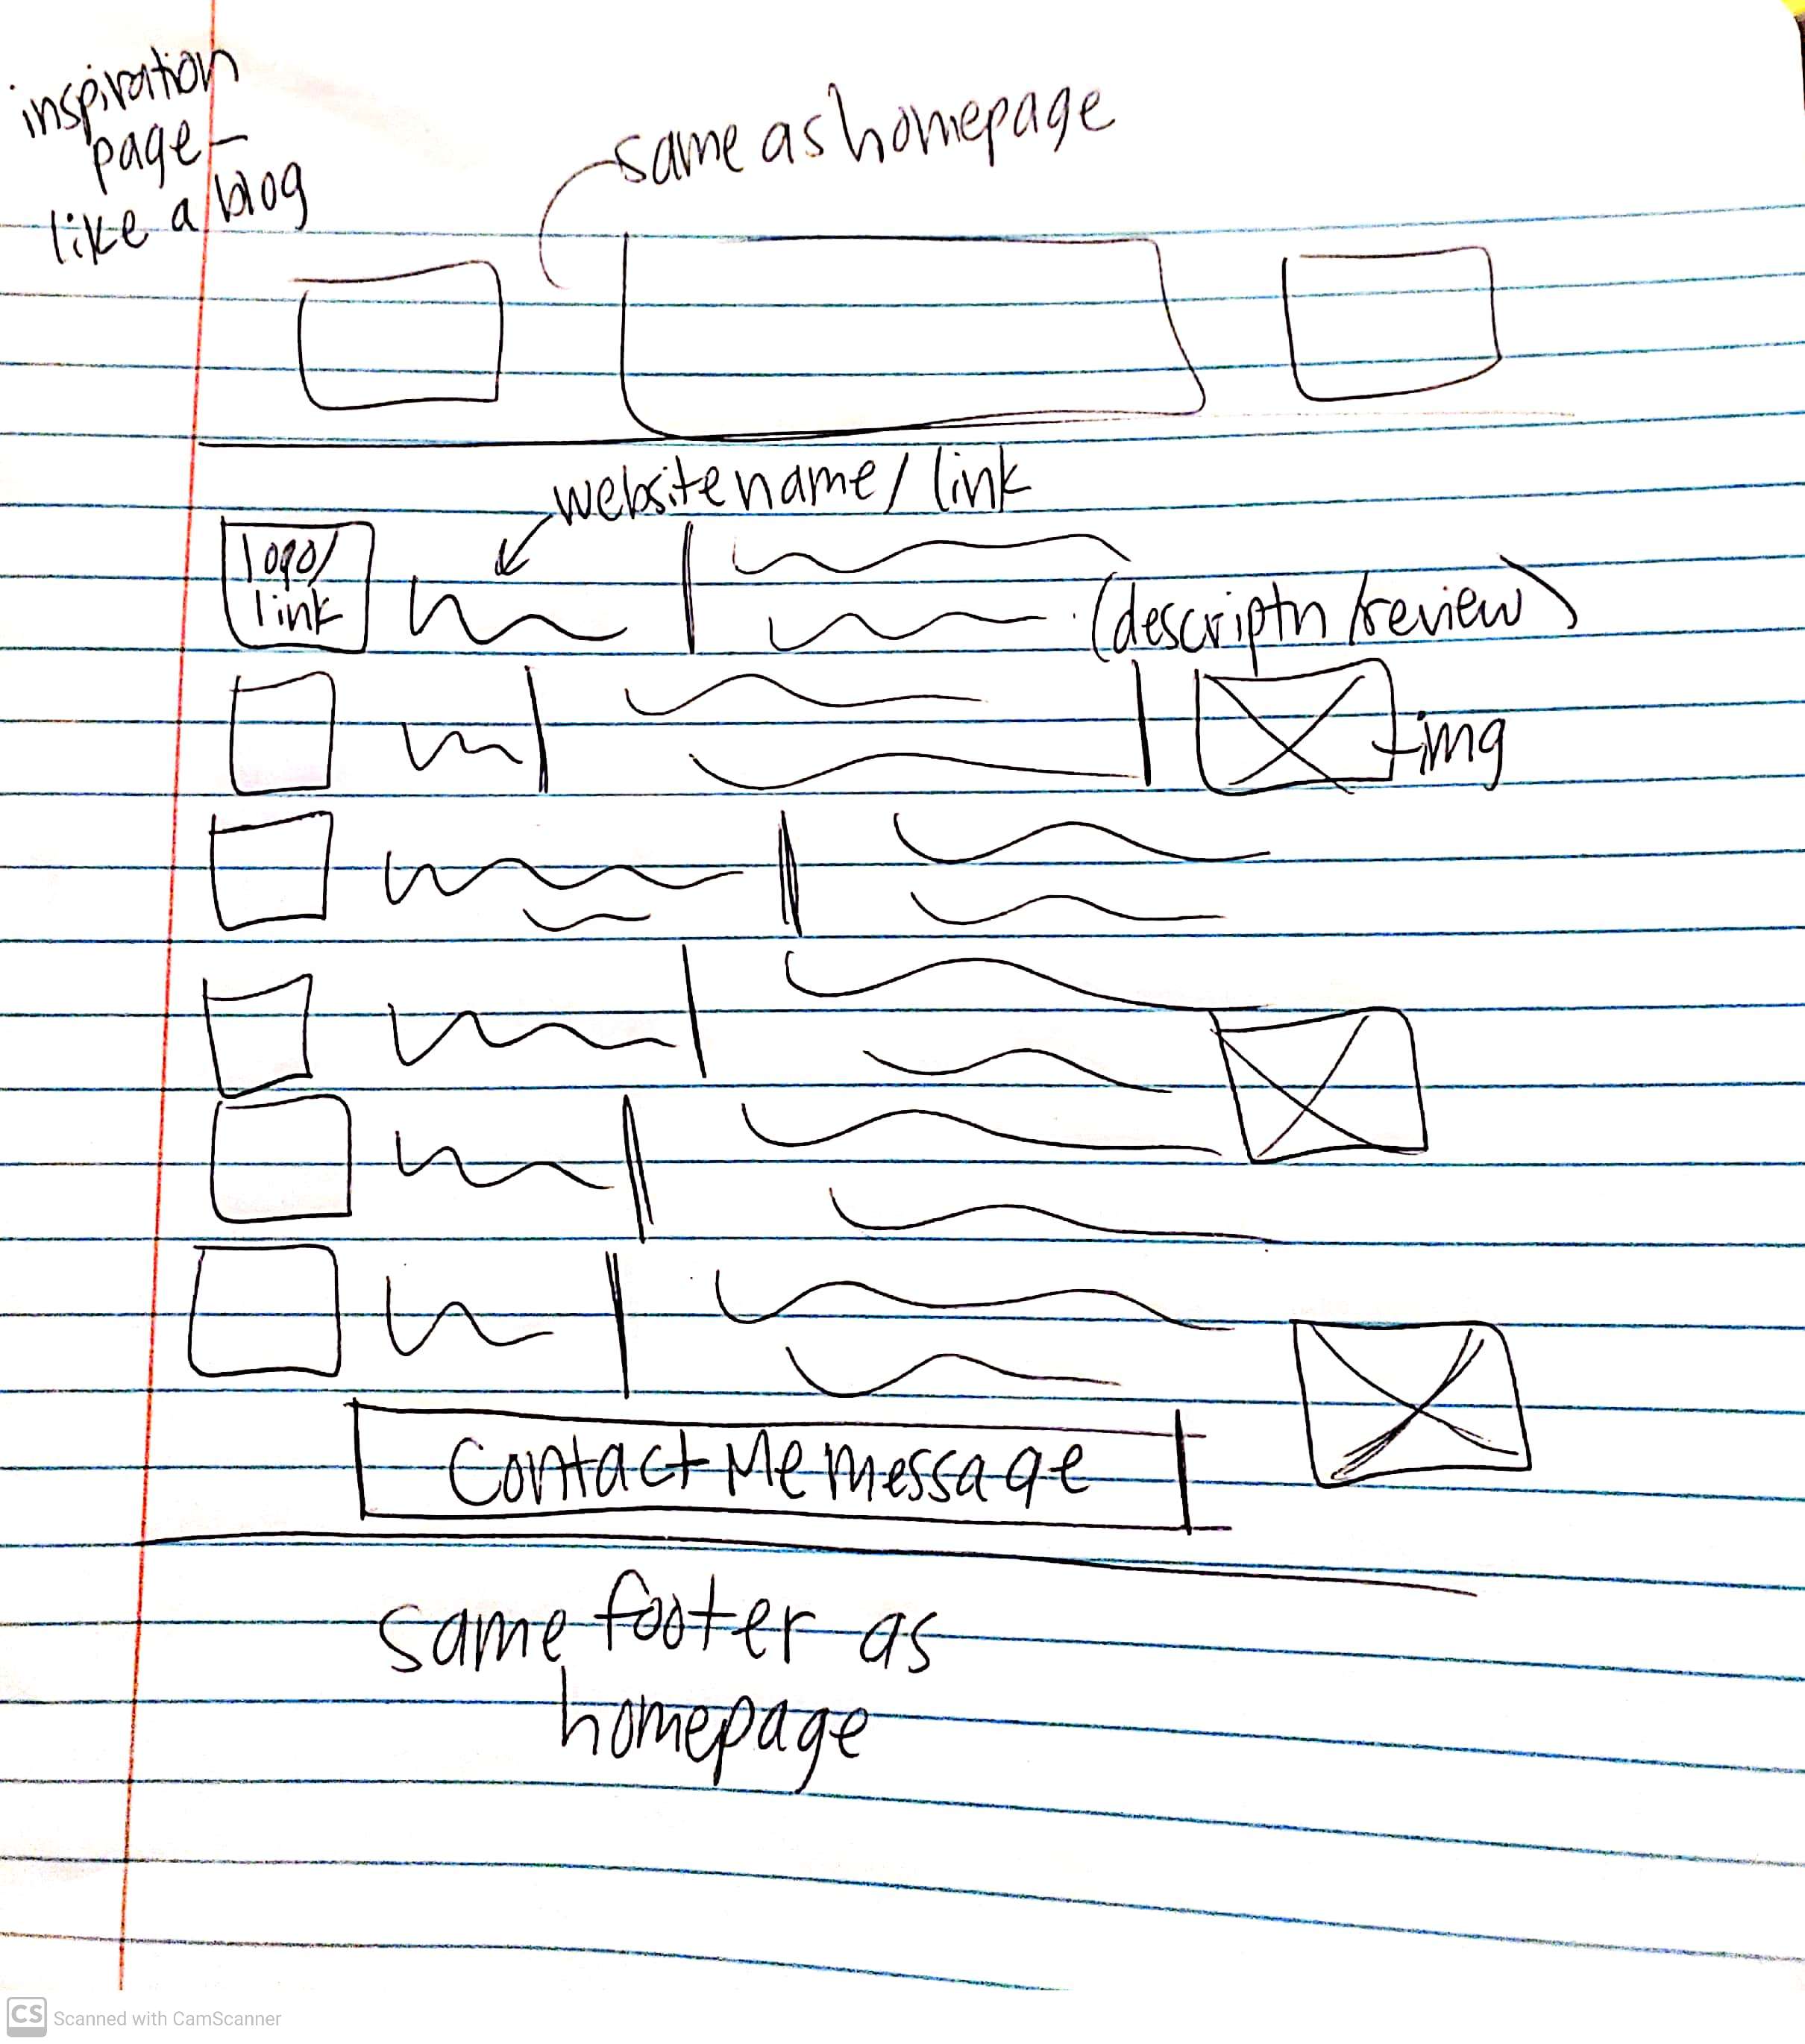 inspiration
page-
like a blog
same as homepage
website name / link
logo/
link
(descriptn /review)
img
Contact Me message
same footer as
homepage
CS Scanned with CamScanner